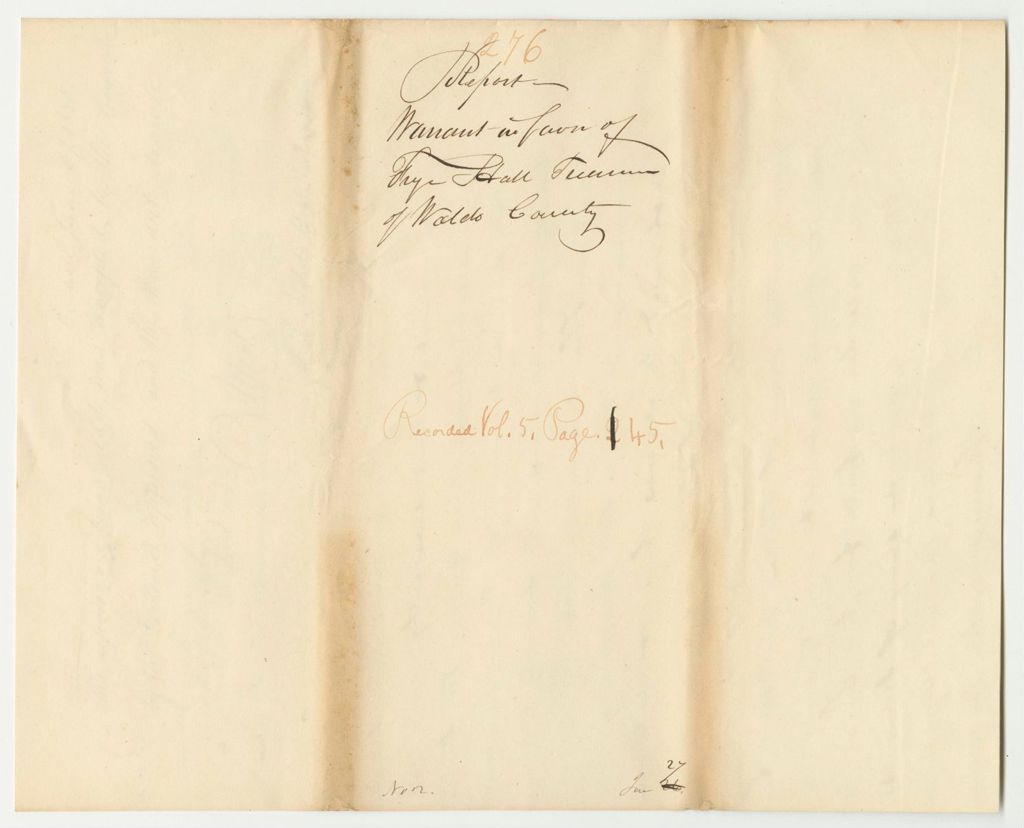 276
Report
Warrant in favor of
Frye Hall Treasurer
of Waldo County
Recorded Vol. 5. Page. 145.
27